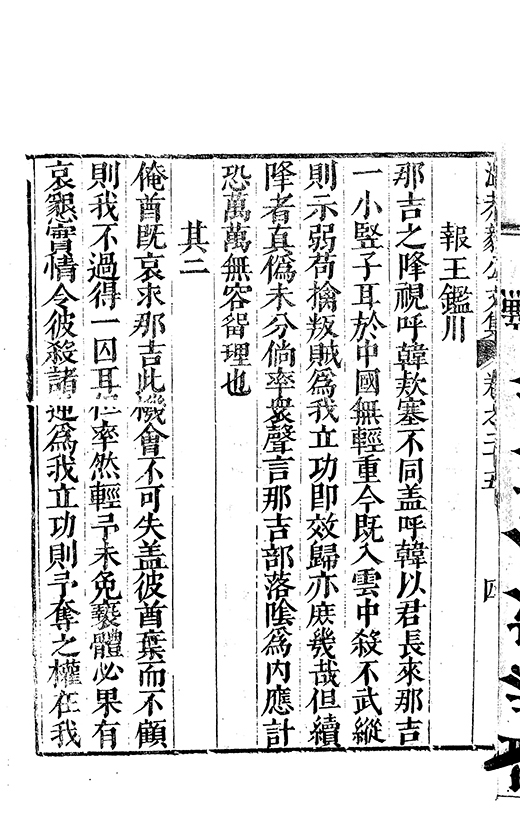 報王鑑川
那吉之降視呼韓欵塞不同盖呼韓以君長來那吉
一小竪子耳於中國無輕重今既入雲中殺不武縱
則示弱苟擒叛賊爲我立功即效歸亦庶幾哉但續
降者真僞未分倘率衆聲言那吉部落陰爲内應計
恐萬萬無容畱理也
其二
俺酋既哀求那吉此機會不可失盖彼酋葉而不顧
則我不過得一囚耳但率然輕予未免䙝體必果有
哀懇實情令彼殺諸逆爲我立功則予奪之權在我